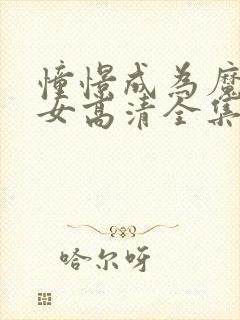 憧憬成为魔
女高清全集
哈尔呀